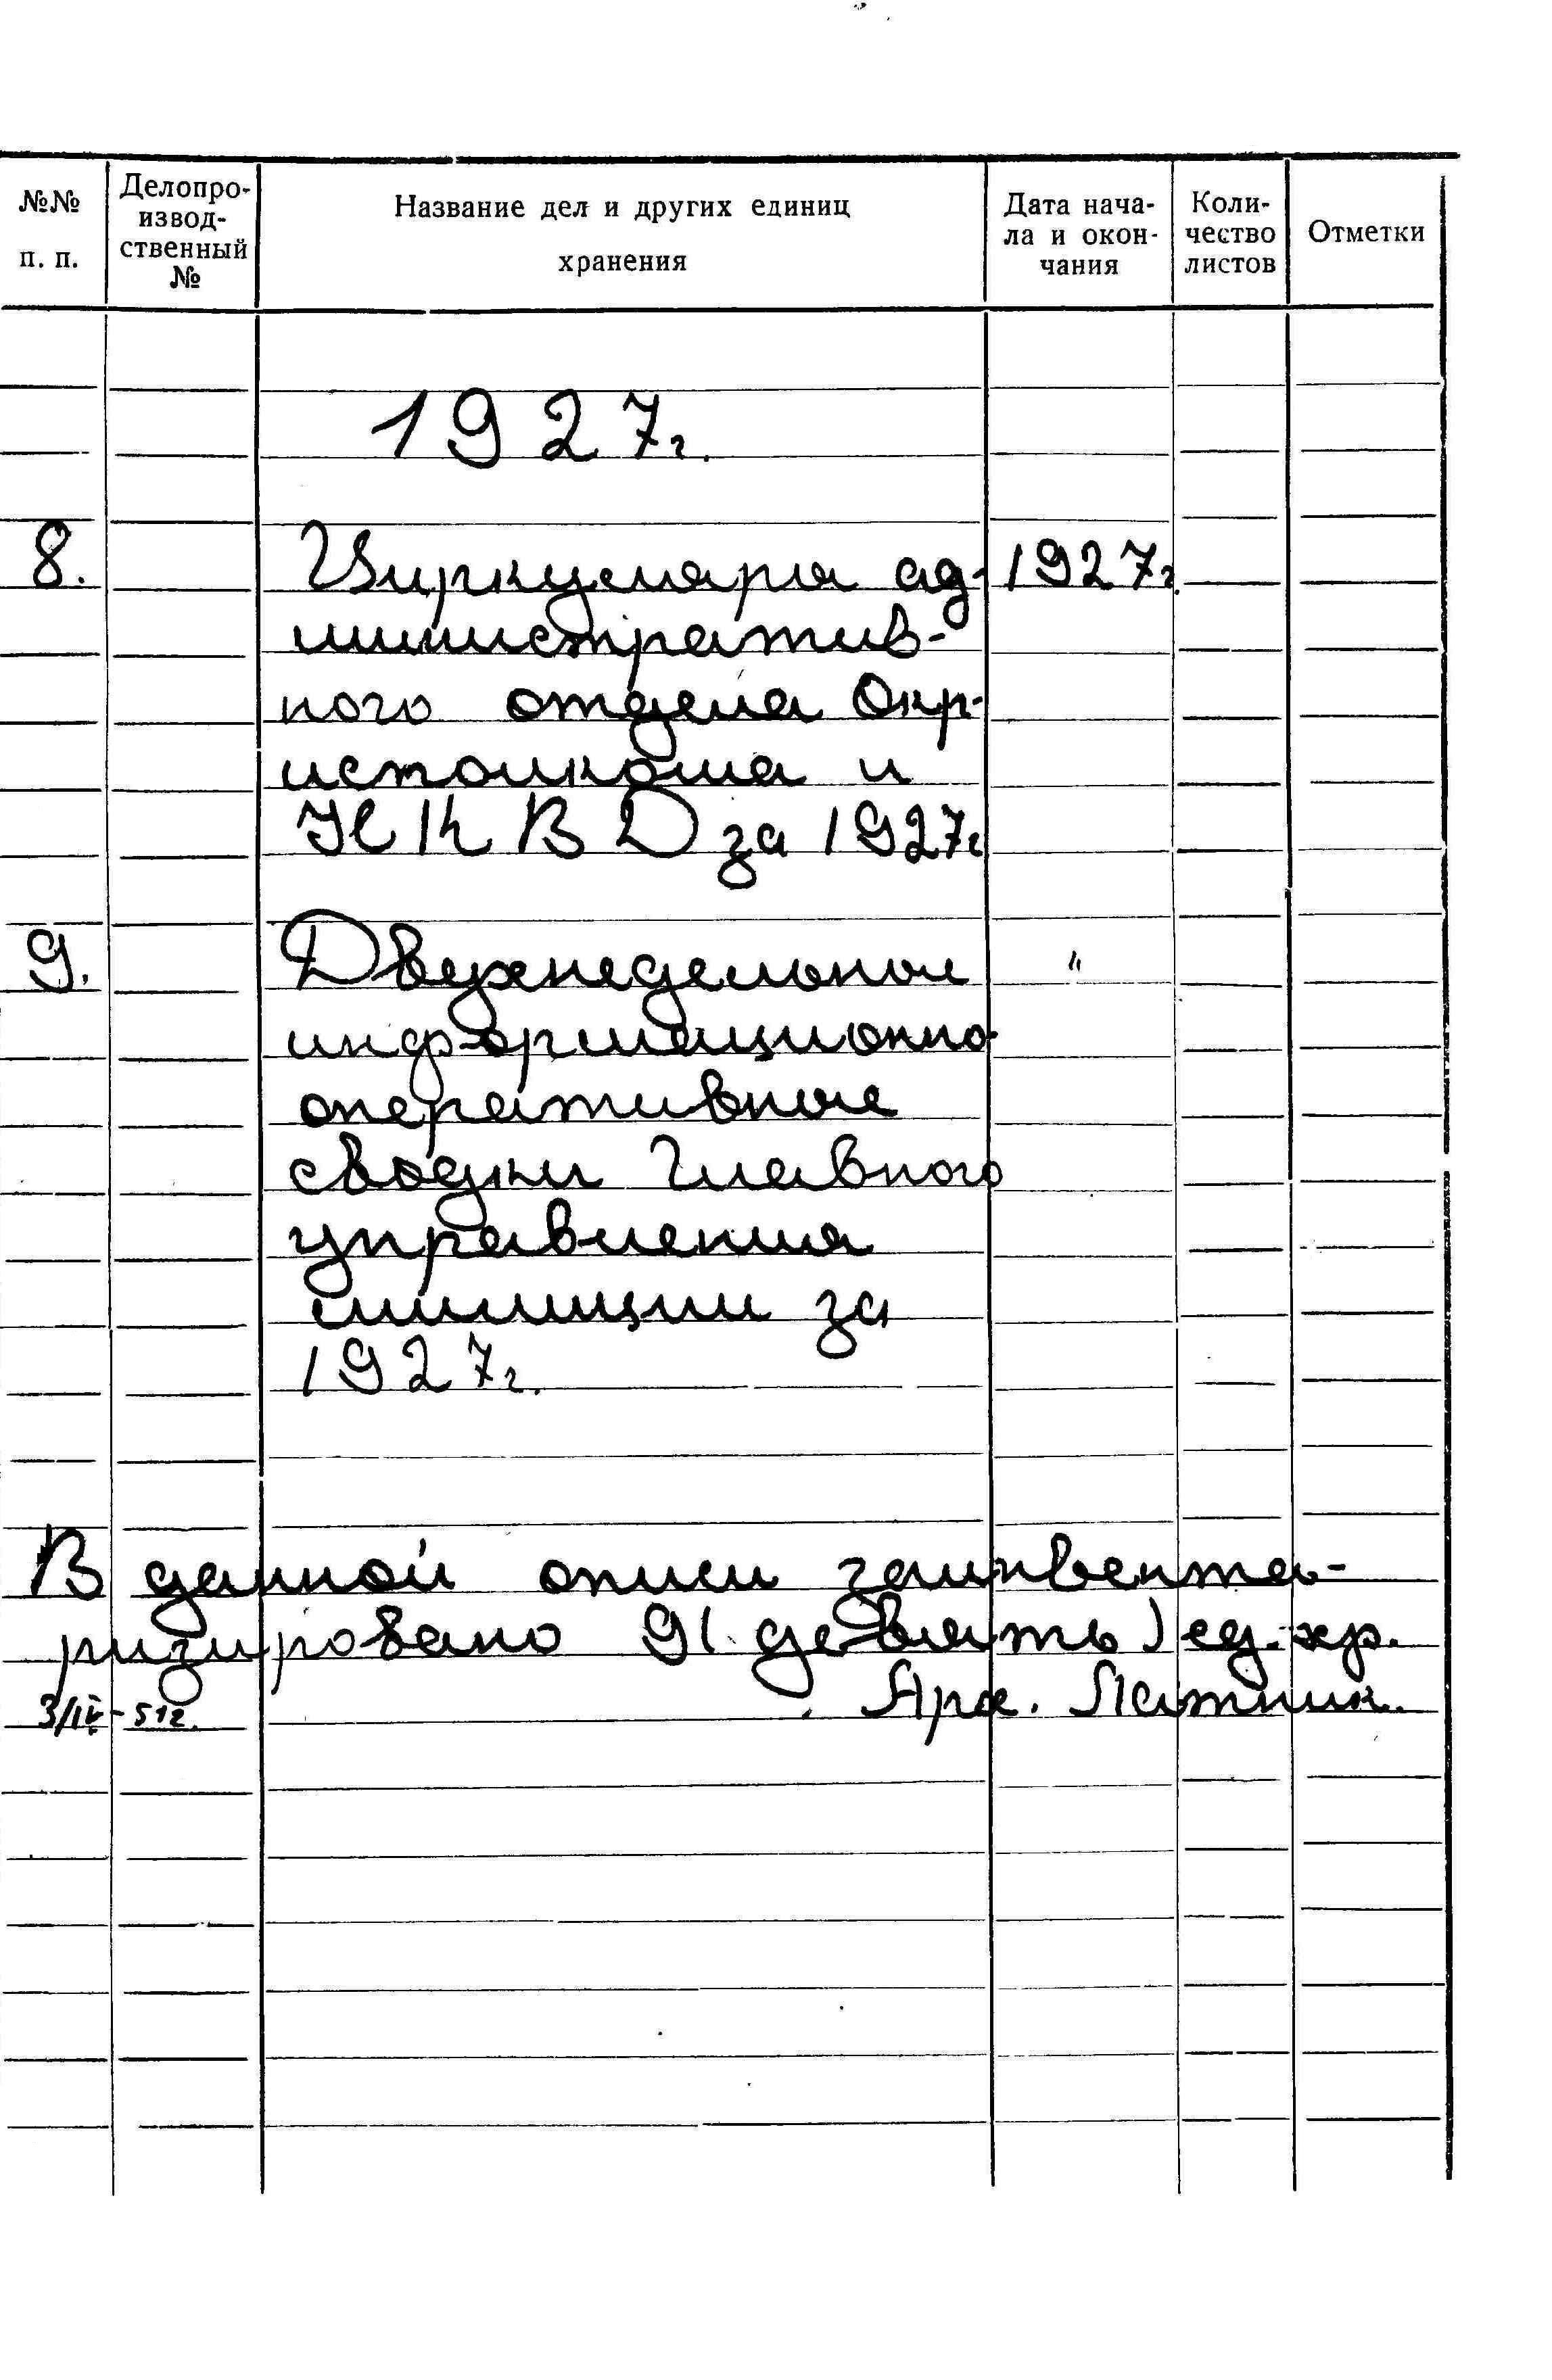 №№ п. п.
Делопро-
извод-
ственный
№
Название дел и других единиц
хранения
Дата нача-
ла и окон-
чания
Коли-
чество
листов
Отметки
1927г.
8. Циркуляры ад- 1927г.
министратив-
ного отдела Окр-
исполкома и
НКВД за 1927г
9. Двухнедельные "
информационно-
оперативные
сводки Главного
управления
милиции за
1927г.
В данной описи заинвента-
ризировано 9(девять) ед. хр.
3/IV-51г. Арх. Патник.